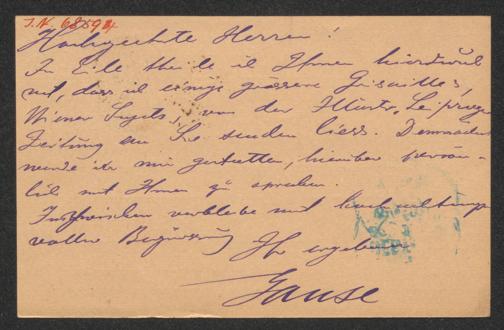 J.N. 68594
Hochgeehrte Herren!
In Eile theile ich Ihnen hierdurch
mit, dass ich einige grössere Grisailles,
Wiener Sujets, von der Illustr. Leipziger
Zeitung an Sie senden liess. Demnächst
werde ich mir gestatten, hierüber persön-
lich mit Ihnen zu sprechen.
Inzwischen verbleibe mit hochachtungs-
voller Begrüssung Ihr ergebener
Gause